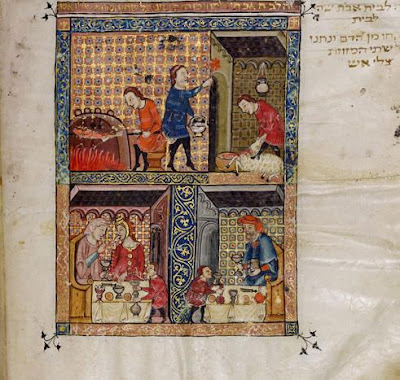 לבית אבת שה
לבית
חו מן הדם ונתנו
ל שתי המזוזות
צלי אש